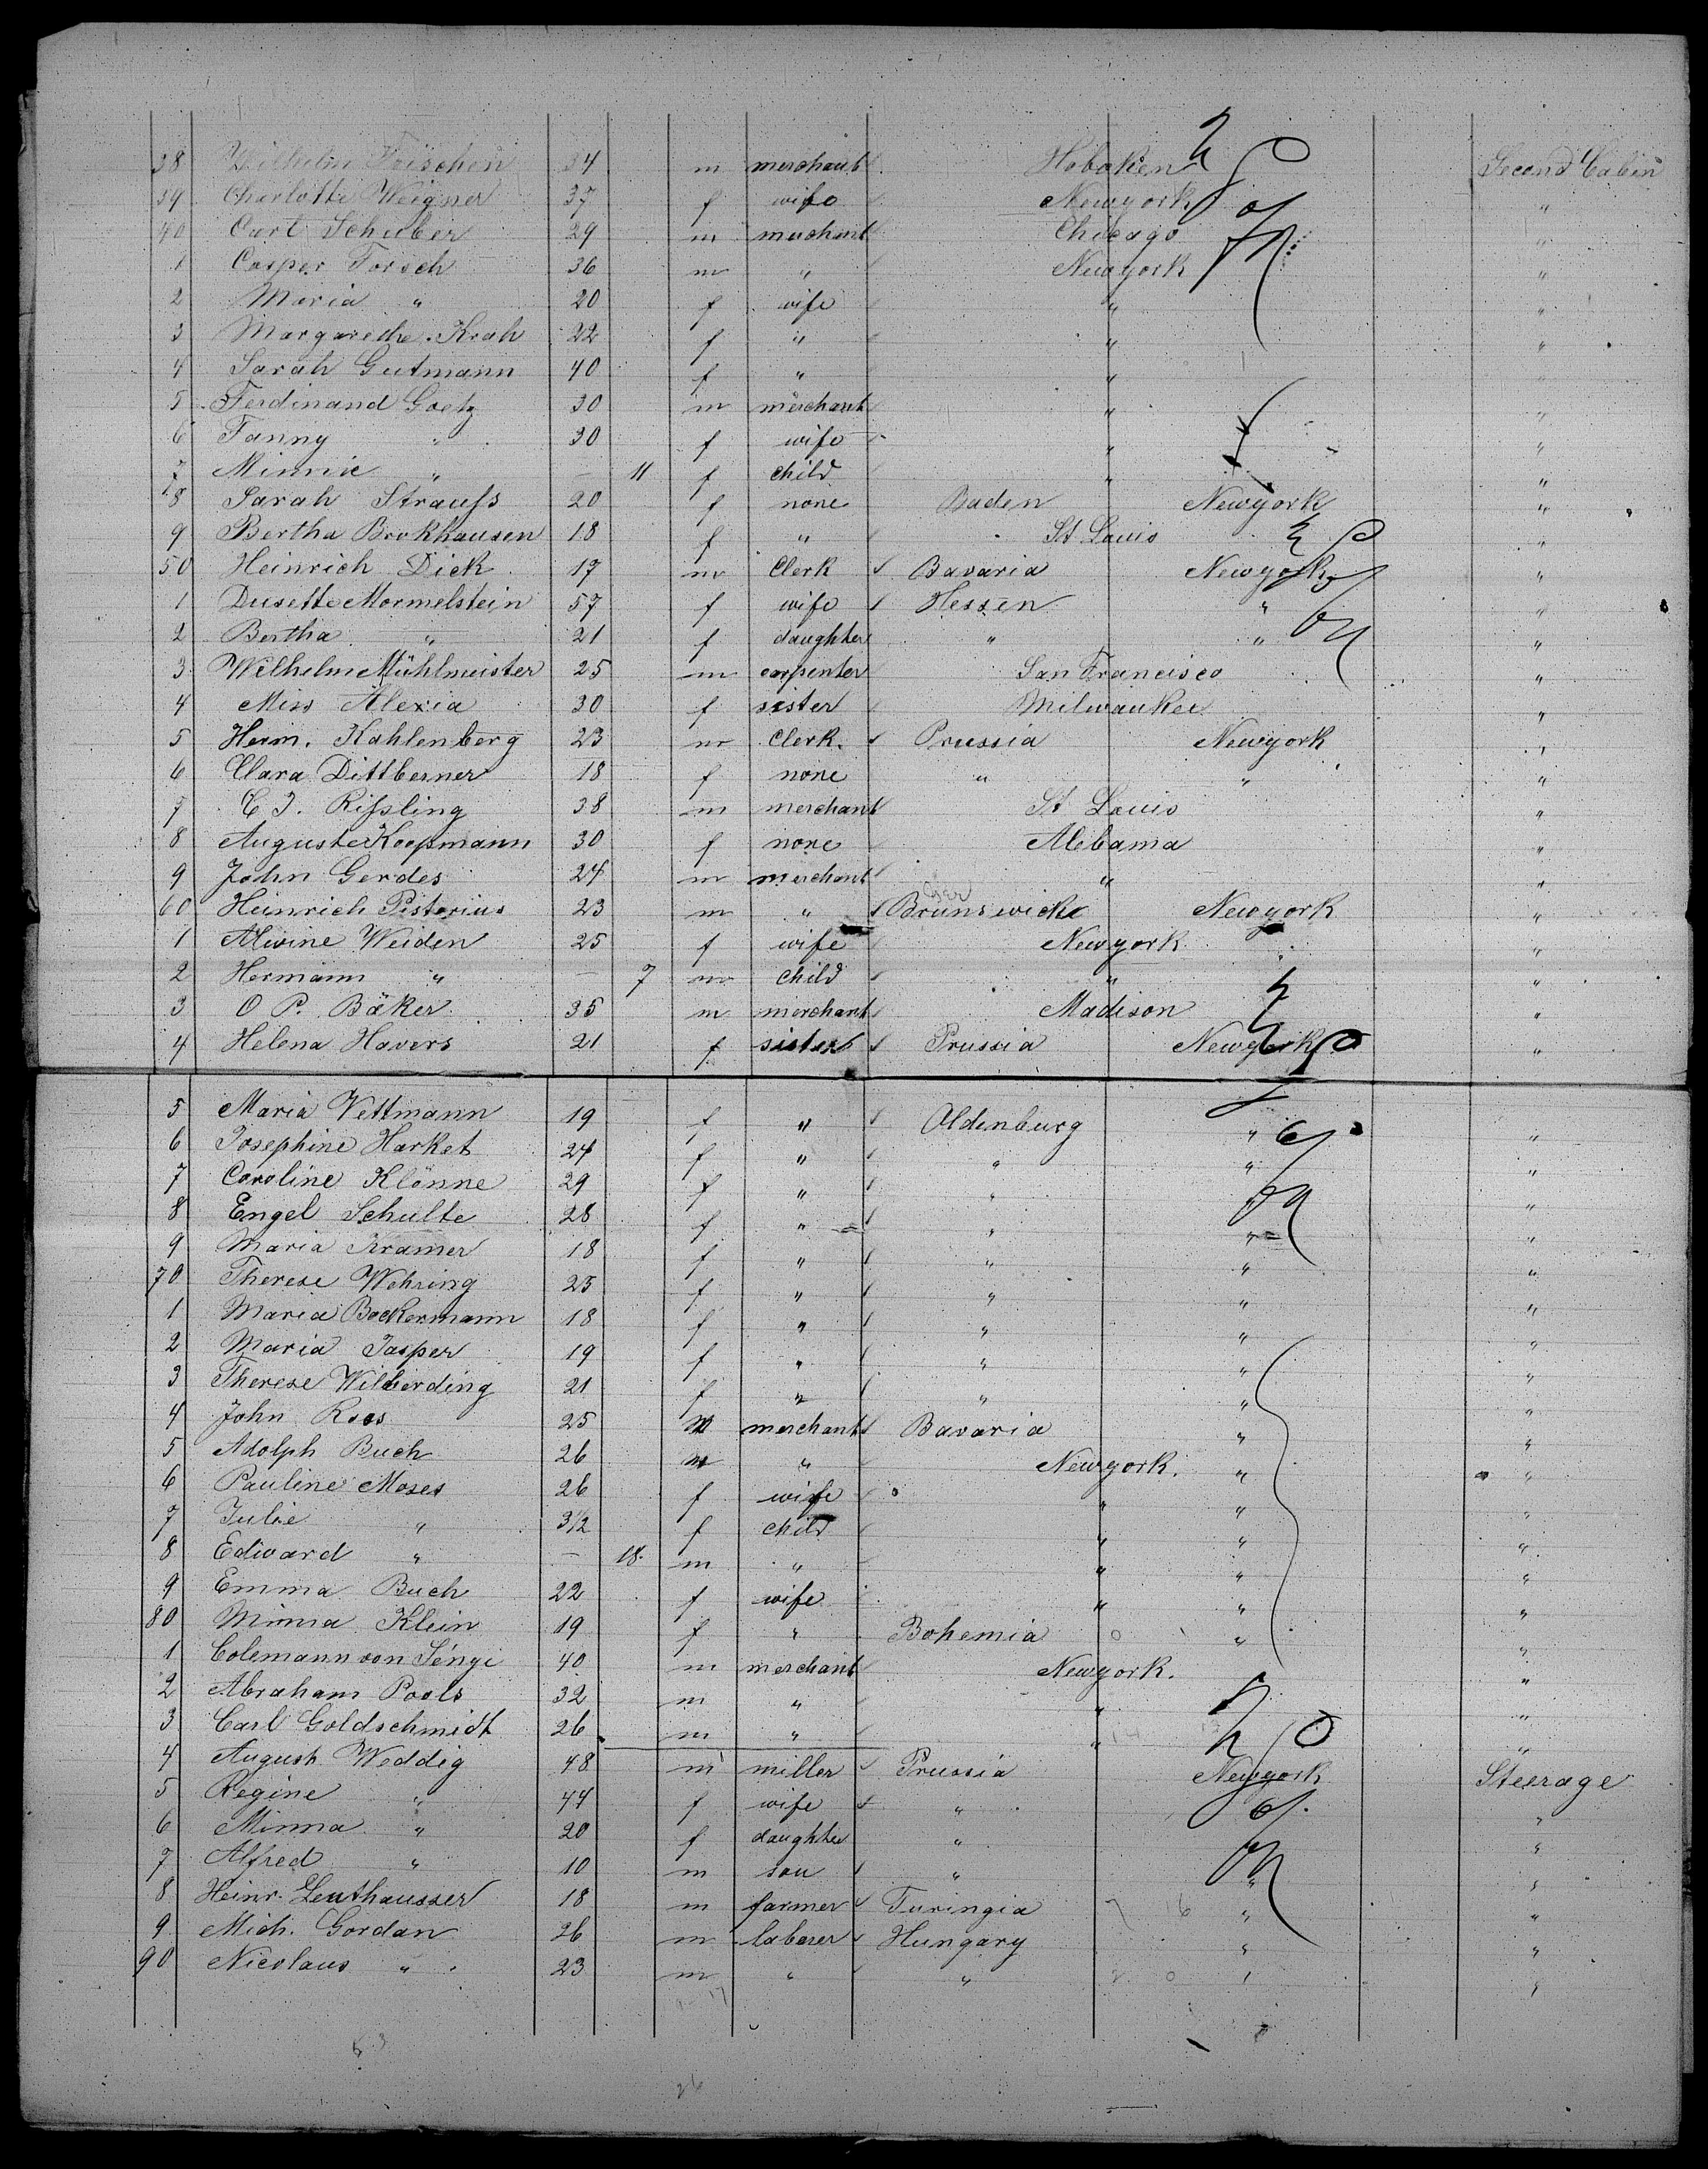 38 Wilhelm 34 m merchant Hoboken Second Cabin
39 Charlotte Weigner 37 f wife Newyork "
40 Carl Schuber 29 m merchant Chicago "
1 Casper Forsch 36 m " Newyork "
2 Maria " 20 f wife " "
3 Margarethe Krah 22 f " " "
4 Sarah Gutmann 40 f " " "
5 Ferdinand Goetz 30 m merchant " "
6 Fanny " 30 f wife " "
7 Minnie " — 11 f child " "
8 Sarah Strauſs 20 f none Baden Newyork "
9 Bertha Brokhausen 18 f " St Louis "
50 Heinrich Dick 17 m Clerk Bavaria Newyork "
1 Dusette Mormelstein 57 f wife Hessen " "
2 Bertha " 21 f daughter " " "
3 Wilhelm Mühlmeister 25 m carpenter San Francisco "
4 Miss Alexia 30 f sister Milwaukee "
5 Herm. Kahlenberg 23 m Clerk. Prussia Newyork "
6 Clara Dittberner 18 f none " " "
7 C J. Riſsling 38 m merchant St Louis "
8 Auguste Koopmann 30 f none Alebama "
9 John Gerdes 24 m merchant " "
60 Heinrich Pistorius 23 m " Brunswick Newyork "
1 Alwine Weiden 25 f wife Newyork "
2 Hermann " — 7 m child " "
3 O P. Bäker 35 m merchant Madison "
4 Helena Havers 21 f sister Prussia Newyork "
5 Maria Vettmann 19 f " Oldenburg " "
6 Josephine Harket 24 f " " " "
7 Caroline Klönne 29 f " " " "
8 Engel Schulte 28 f " " " "
9 Maria Kramer 18 f " " " "
70 Therese Wehring 25 f " " " "
1 Maria Bockermann 18 f " " " "
2 Maria Jasper 19 f " " " "
3 Therese Wilberding 21 f " " " "
4 John Roos 25 m merchant Bavaria " "
5 Adolph Buch 26 m " Newyork. " "
6 Pauline Moses 26 f wife " " "
7 Julie " 3½ f child " " "
8 Edward " — 18. m " " " "
9 Emma Buch 22 f wife " " "
80 Minna Klein 19 f " Bohemia " "
1 Colemann von 40 m merchant Newyork. "
2 Abraham Pools 32 m " " "
3 Carl Goldschmidt 26 m " " "
4 August Weddig 48 m miller Prussia Newyork Steerage
5 Regine " 44 f wife " "
6 Minna " 20 f daughter " "
7 Alfred " 10 m son " " "
8 Heinr. Leuthausser 18 m farmer Turingia " "
9 Mich. Gordan 26 m laborer Hungary " "
90 Nicolaus " 23 m " " " "